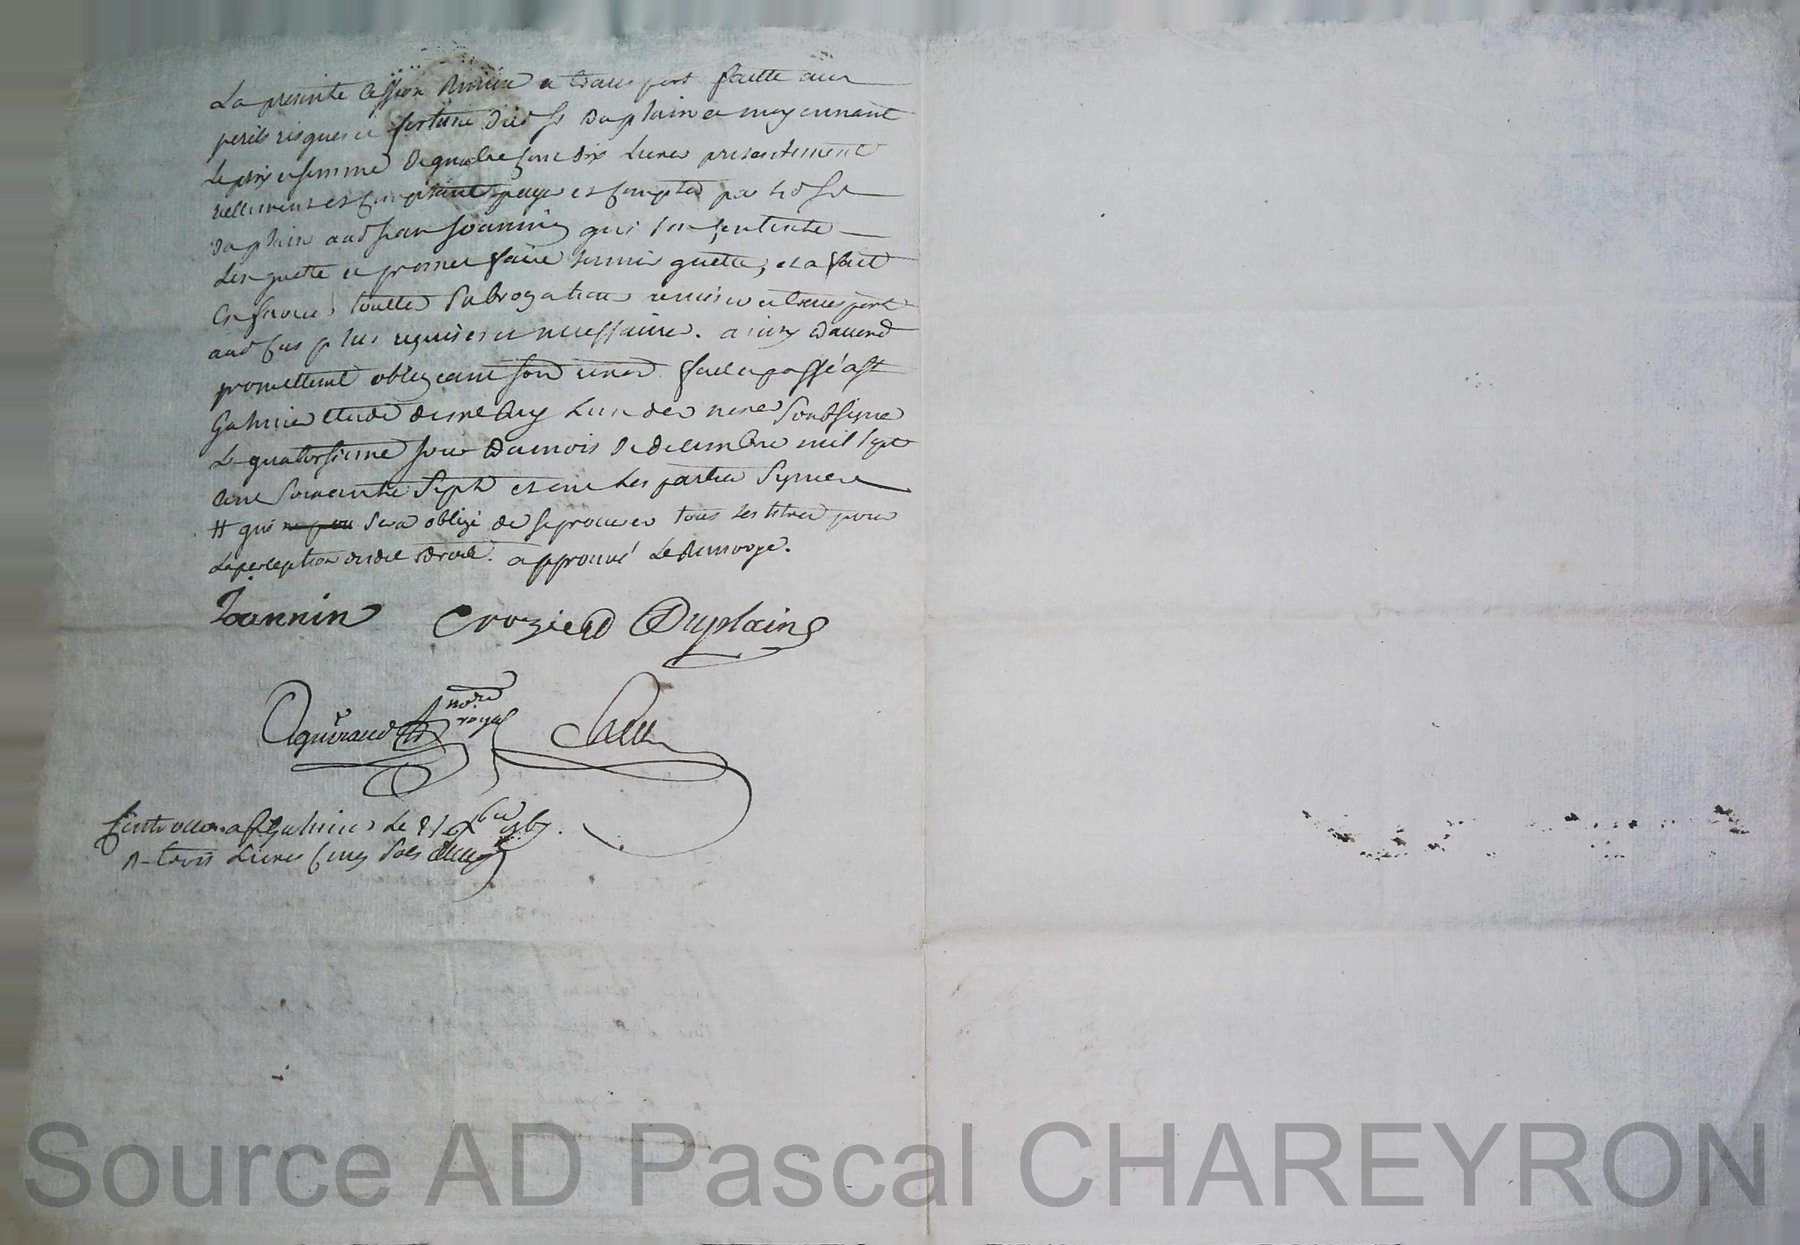 La presente Cession Remise et transport faitte aux
perils risques et fortune dud Sr Duplain et moyennant
Le prix et somme De quatre cent dix Livres presentement
reellement et Comptant payé et Compté par led Sr
Duplain aud sieur Joannin qui s'en contente
L'en quitte et promet faire tenir quitte, et a fait
en faveur toutte Subrogation remise et transport
aud Cas plus requises et necessaire. ainsy Convenu
promettent obligeant Soud renon. fait et passé a St
Galmier etude de me Guy L'un des nores Soubsigné
Le quatorsieme jour Du mois De decembre mil Sept
Cent Soixante Sept et ont Les parties Signé
# qui Sera obligé de Se procurer tous les titres pour
La perception dudit droit. approuvé Le Renvoye.
Joannin Crozier Duplain
nore
royal
Controllé a St Galmier Le 21 xbre 1767.
R. trois Livres Cinq Sols
Source AD Pascal CHAREYRON